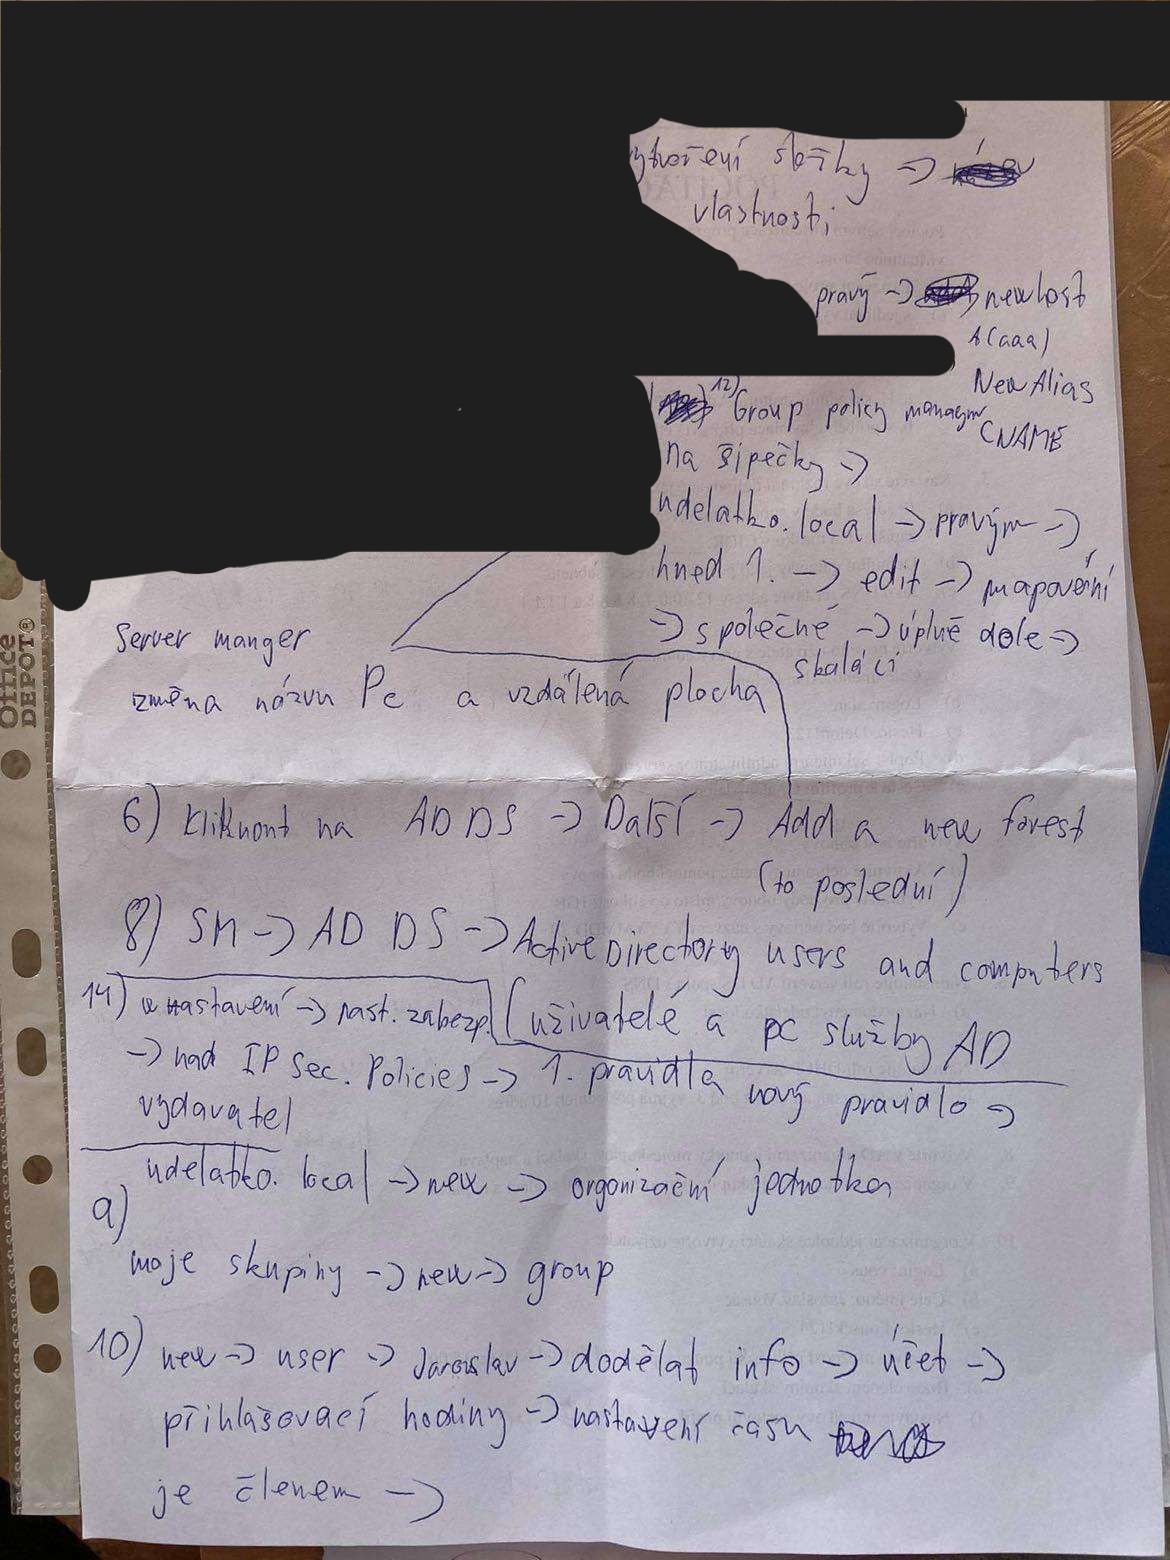 vytvoření složky ->
vlastnosti
pravý -> new host
A(aaa)
New Alias
CNAME
12) Group policy managm
na šipečky ->
udelatko.local -> pravým ->
hned 1. -> edit -> mapování
-> společné -> úplně dole ->
skaláci
Server manger
změna názvu Pc a vzdálená plocha
6) Kliknout na AD DS -> Další -> Add a new forest
(to poslední)
8) SM -> AD DS -> Active Directory users and computers
(uživatelé a pc služby AD
14) nastavení -> nast. zabezp.
-> nad IP Sec. Policies -> 1. pravidla nový pravidlo ->
vydavatel
9) udelatko.local -> new -> organizační jednotka
moje skupiny -> new -> group
10) new -> user -> Jaroslav -> dodělat info -> účet ->
přihlašovací hodiny -> nastavení času
je členem ->
Office
DEPOT®